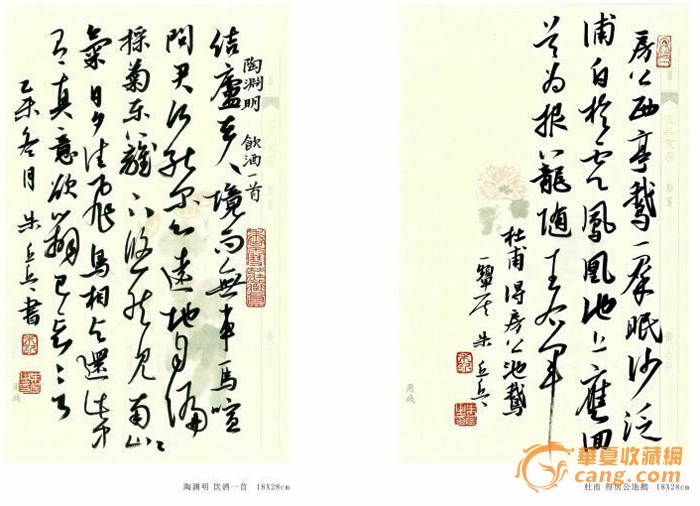 陶渊明 飲酒一首
结廬在人境而無車馬喧
問君何能尔心遠地自偏
採菊东籬下悠然见南山ミ
氣日夕佳飛鳥相与還此中
有真意欲辯已忘言
乙未冬月 朱丘兵書
陶渊明 饮酒一首 18X28cm
房公西亭鵞一羣眠沙泛
浦白於雲鳳凰池上應回
首为报籠随王右軍
杜甫 得房公池鵞
朱丘兵
杜甫 得房公池鹅 18X28cm
華夏收藏網
cang.com